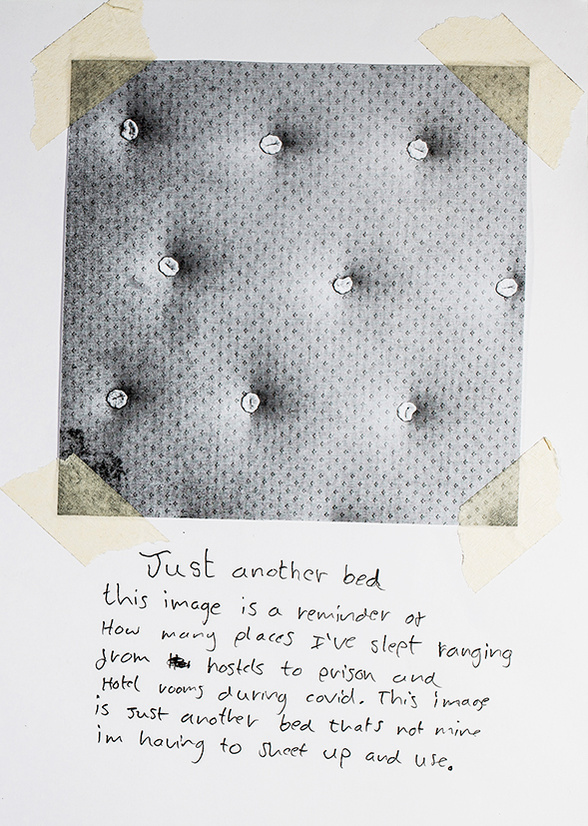 Just another bed
this image is a reminder of
How many places I've slept ranging
from hostels to prison and
Hotel rooms during covid. This image
is Just another bed thats not mine
im having to sheet up and use.